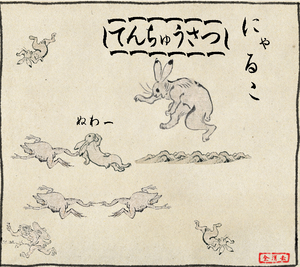 てんちゅうさつ
にゃるこ
ぬわー